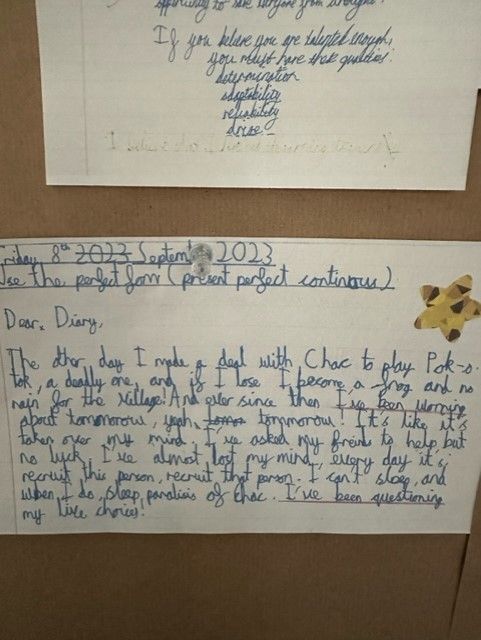 opportunity to save anyone from drought.
If you believe you are talented enough,
you must have these qualities:
determination
adaptability
reliability
drive
I believe that I
Friday 8th 2023 September 2023
Use the perfect form (present perfect continuous)
Dear, Diary,
The other day I made a deal with Chac to play Pok-a-
tok, a deadly one, and if I lose I become a frog and no
rain for the village! And ever since then I've been worrying
about tommorow, yeah, tommorow! It's like it's
taken over my mind. I've asked my freinds to help, but
no luck. I've almost lost my mind, every day it's,
recruit this person, recruit that person. I can't sleep, and
when I do, sleep paralisis of Chac. I've been questioning
my life choices!